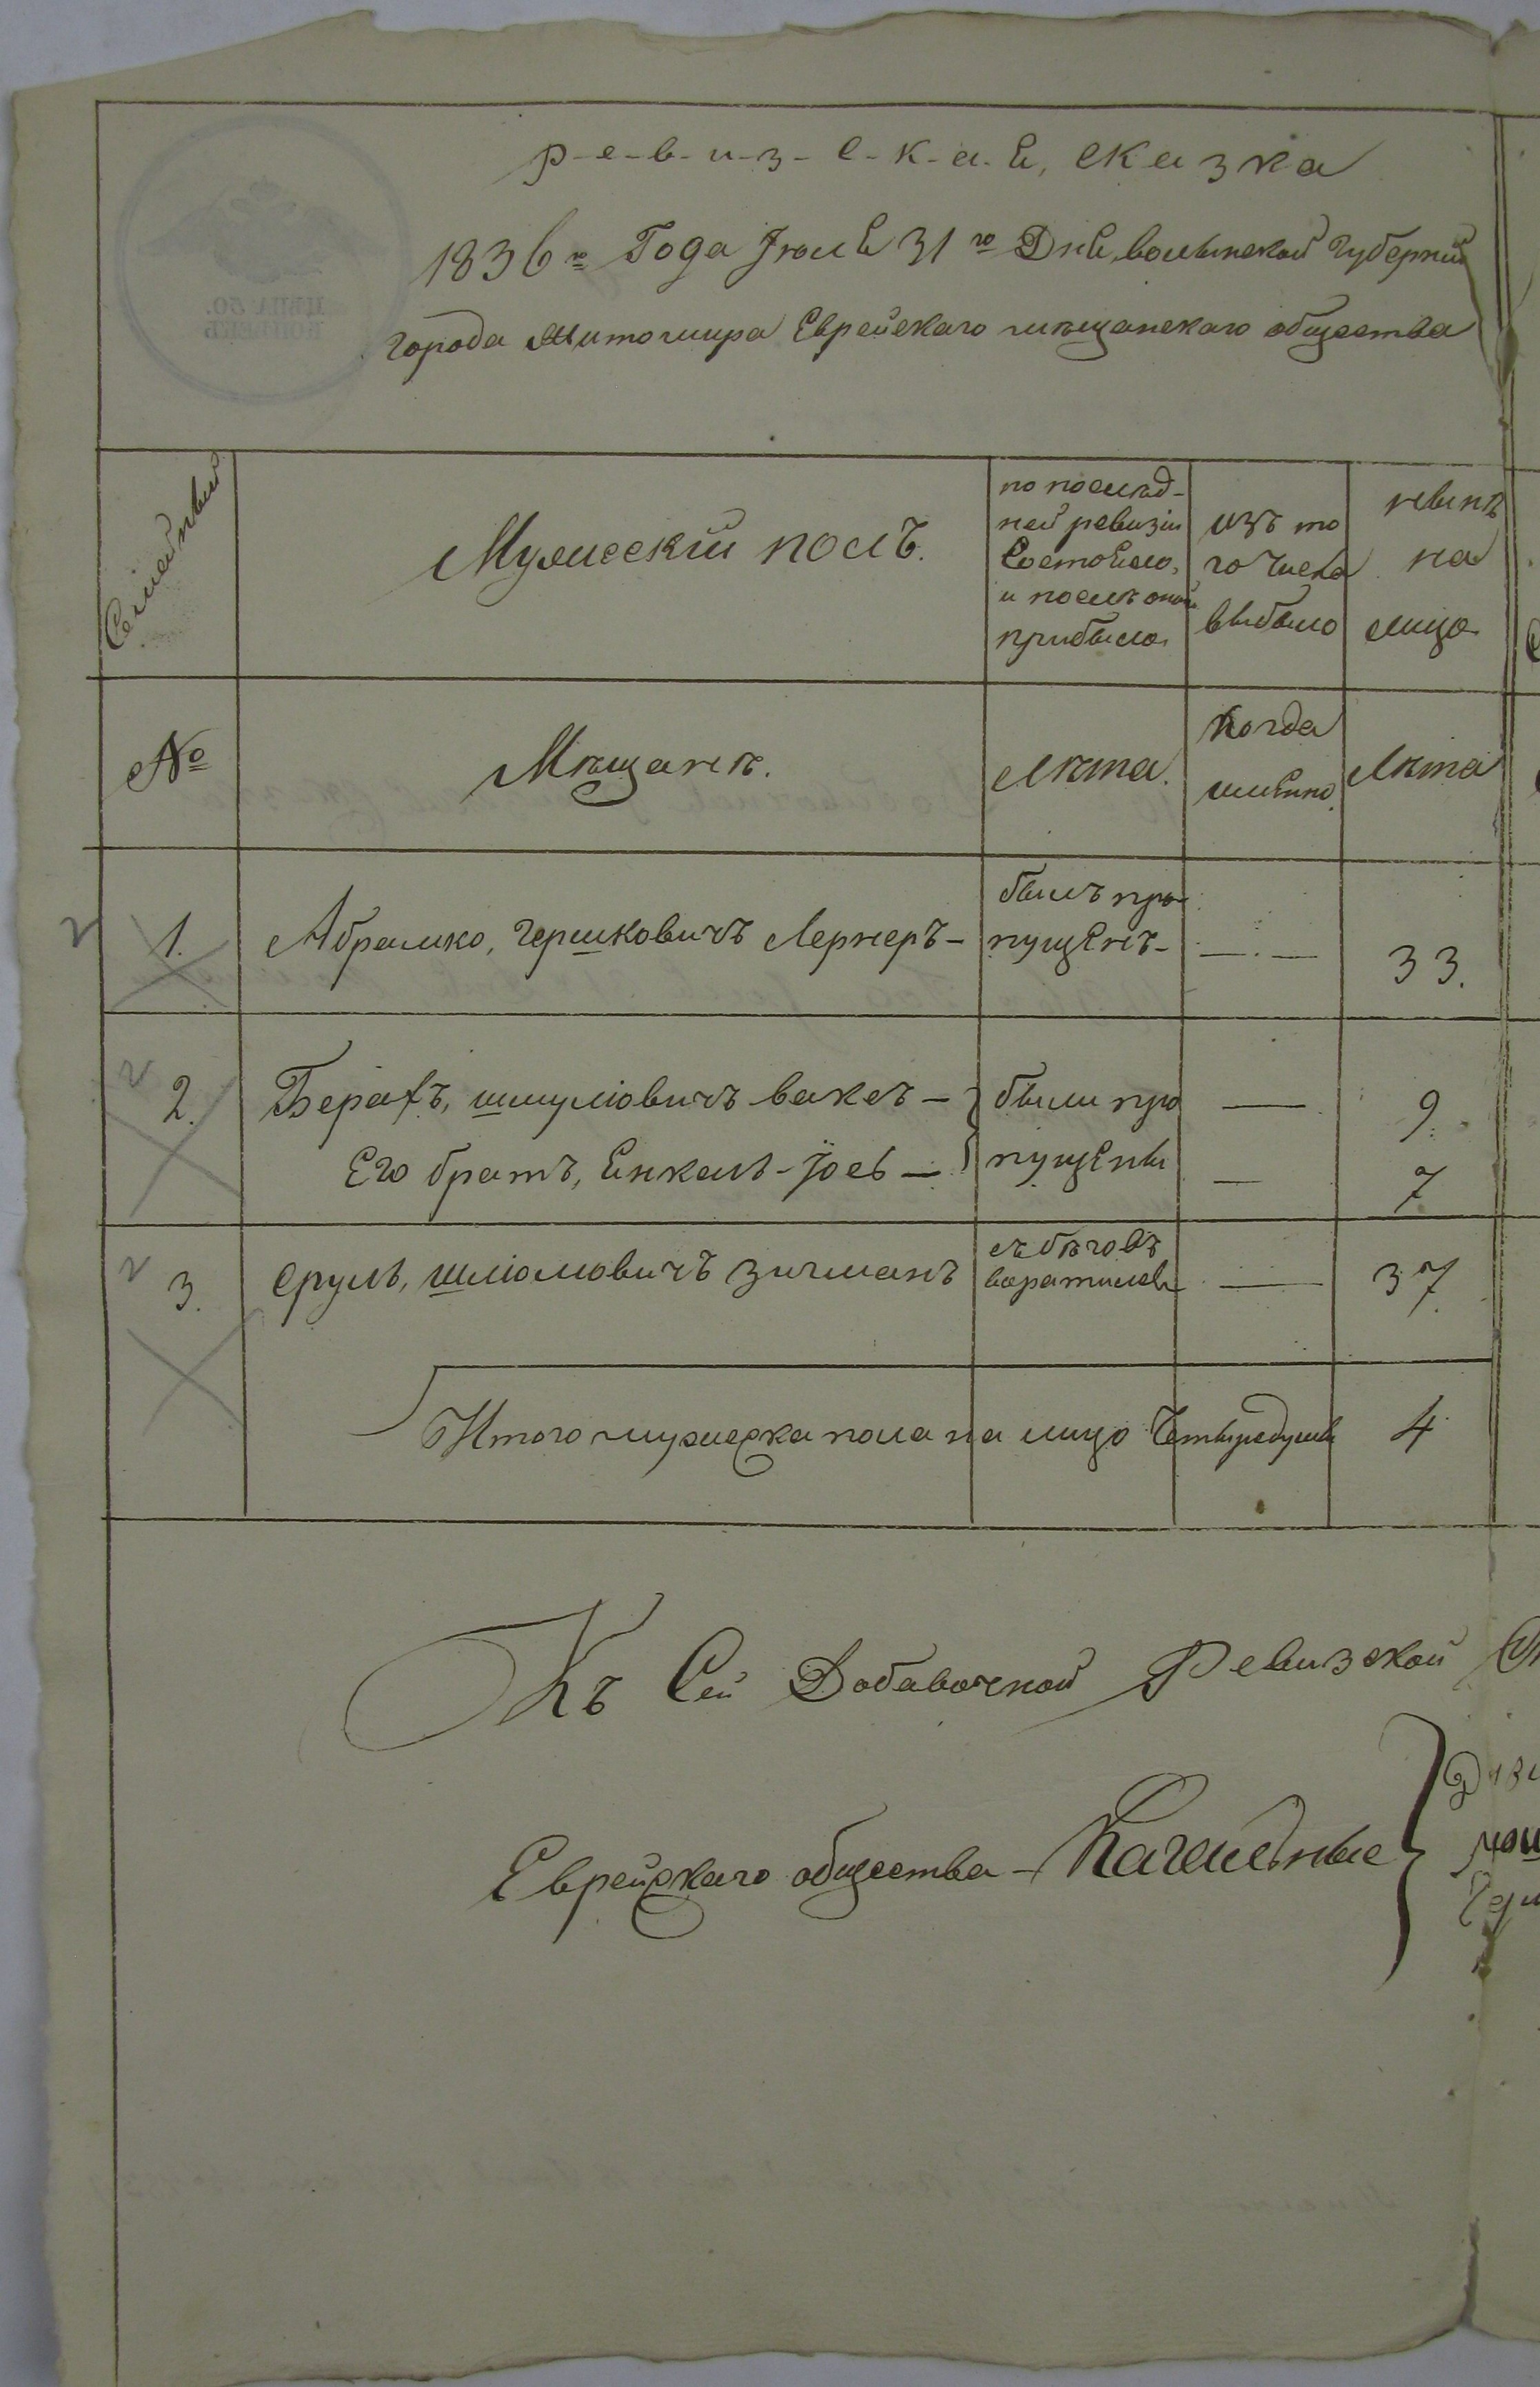 р-е-в-и-з-с-к-а-я, сказка
1836го Года Июля 31го Дня, волынской губернии
города Житомира Еврейскаго мѣщанскаго общества
Семейный
Мужескій полъ.
по послѣд-
ней ревизіи
состояло,
и послѣ оной
прибыло
изъ то
го числа
выбыло
нынѣ
на
лицо
№
Мѣщанѣ.
Лѣта.
Когда
имянно.
Лѣта
1. Абрамко, гершковичъ Лернеръ – былъ про
пущенъ – — . — 33.
2. Берахъ, шмулiовичъ ваксъ – были про — 9.
Его братъ, Янкель-Iось – пущены — 7
3. сруль, шлiомовичъ зигманъ съ бѣговъ
воратился — 37.
Итого мужеска пола на лицо Четыре души 4
Къ Сей Добавочной Ревизской
Еврейскаго общества – Кагальные
ЦѢНА 50.
КОПѢЕКЪ